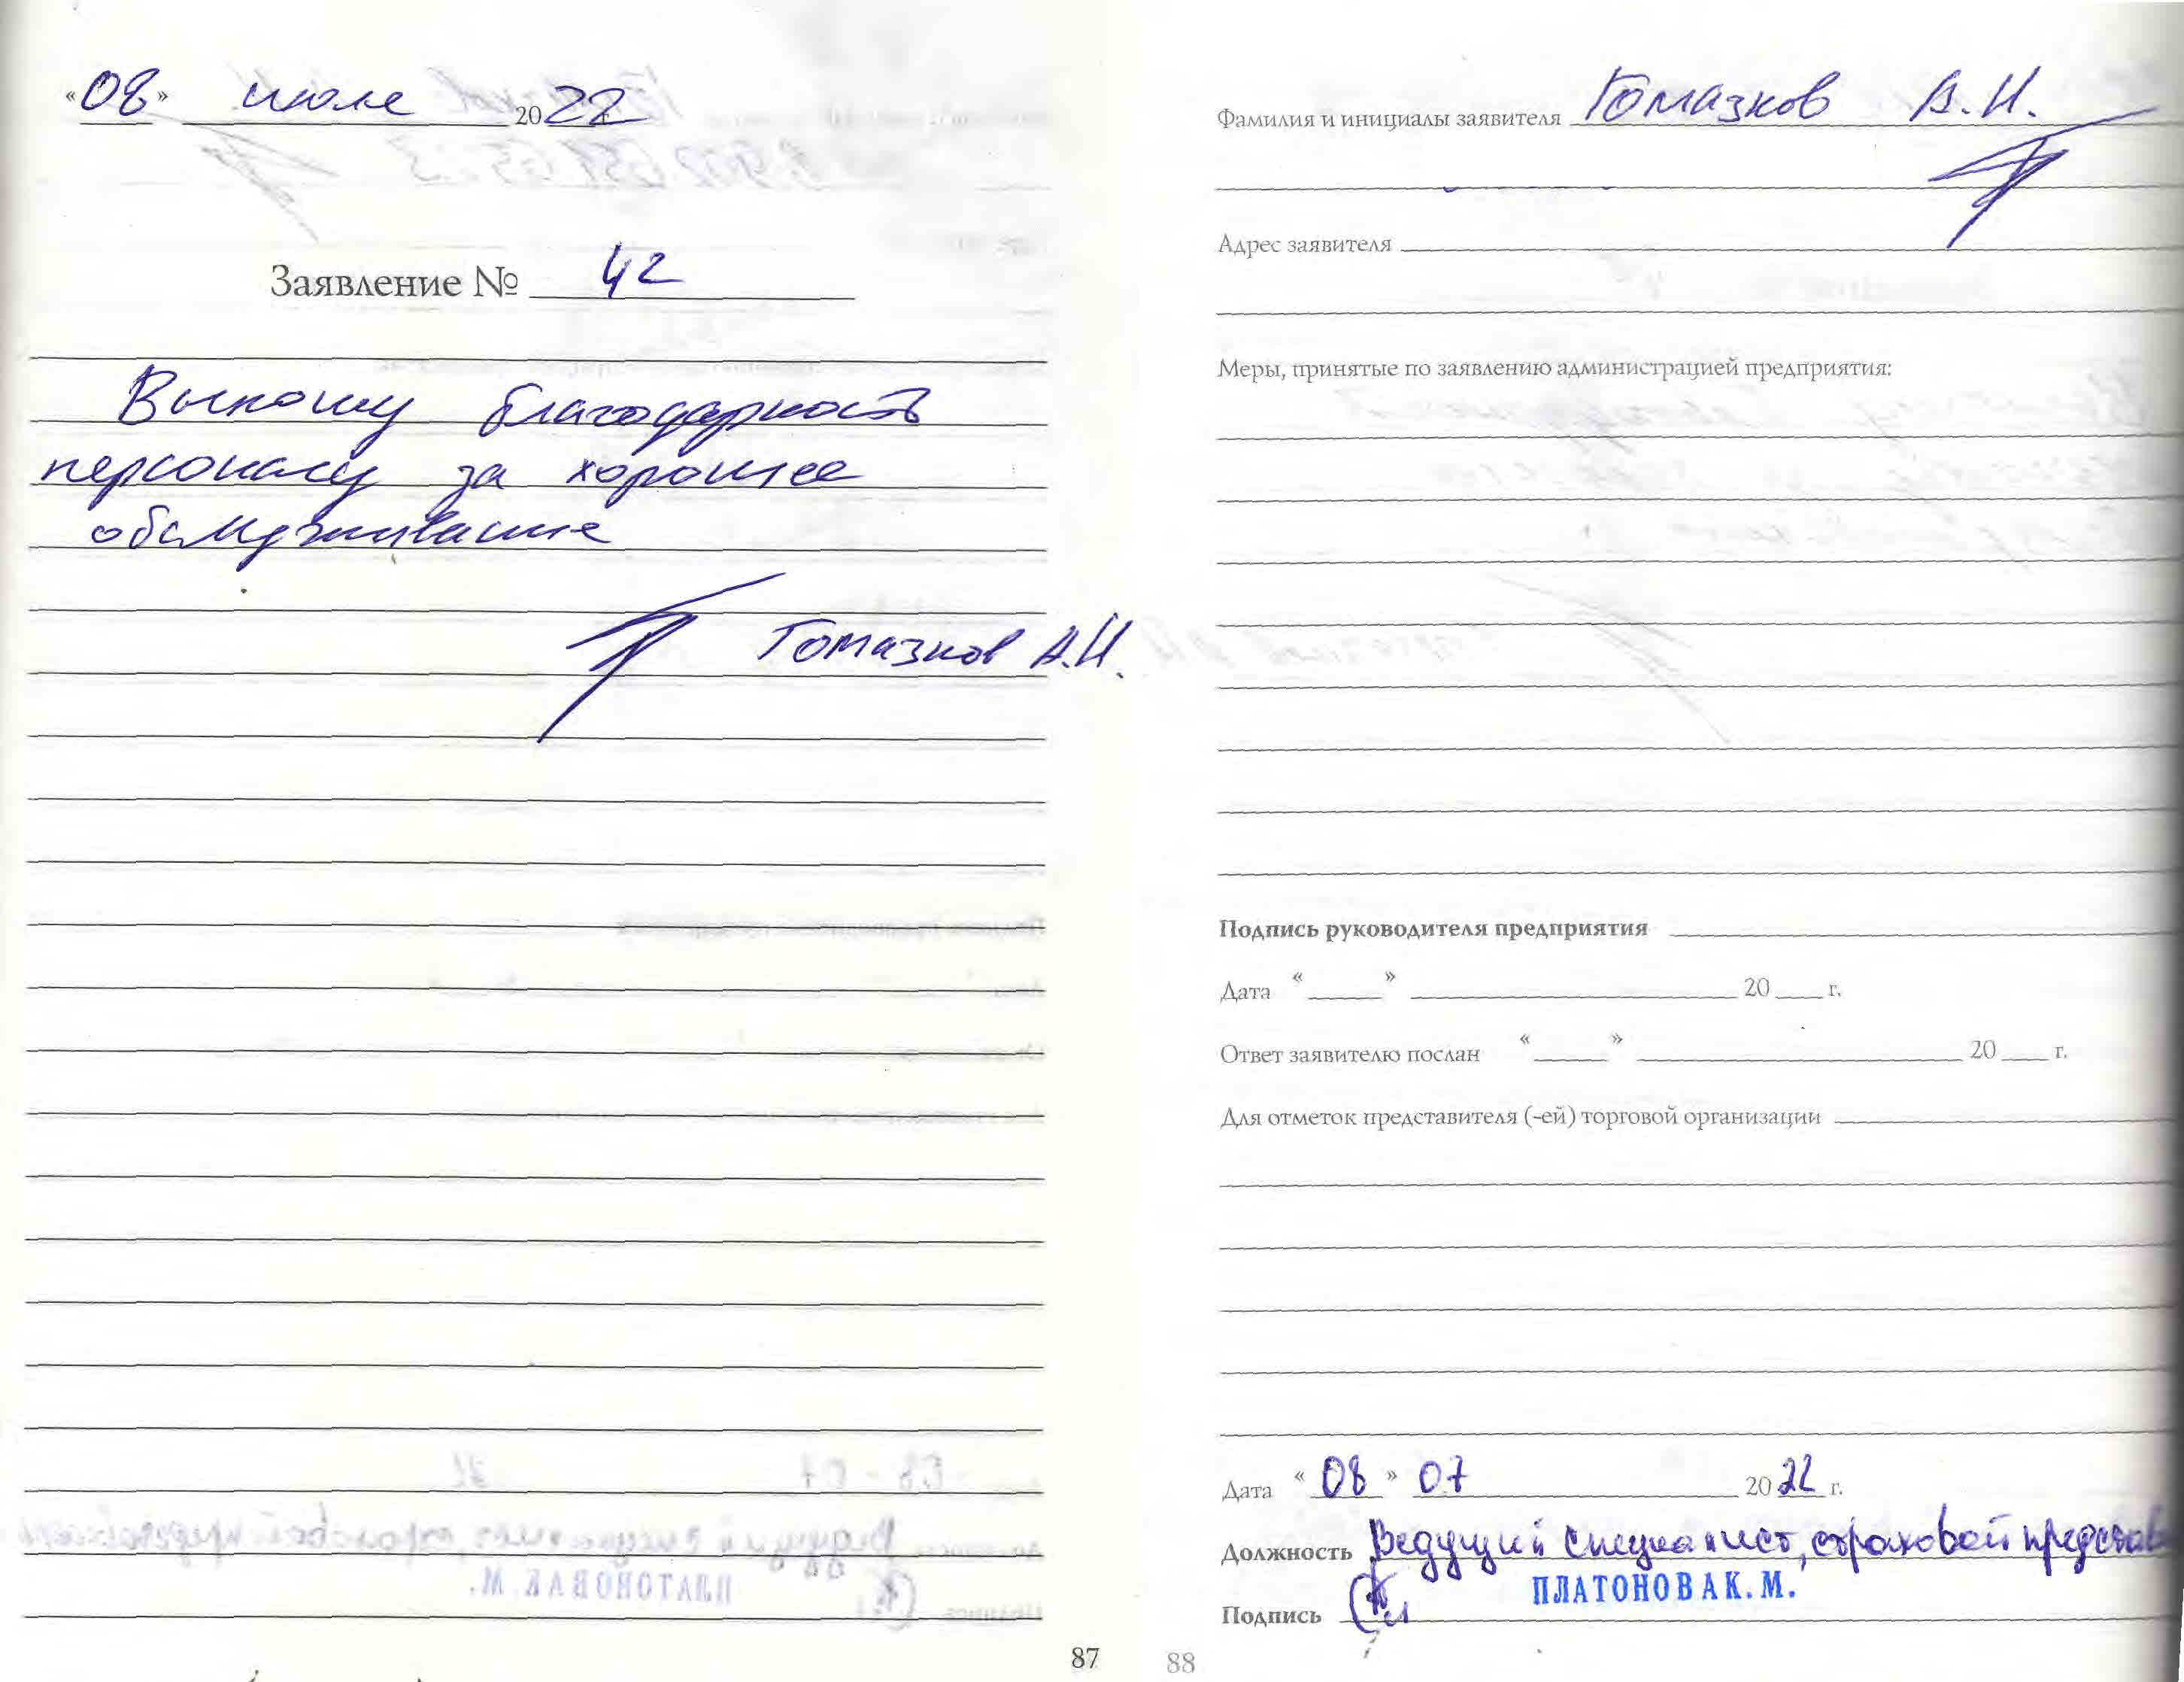 «08» июле 2022
Заявление № 42
Выношу благодарность
персоналу за хорошее
обслуживание
Томазков А.И.
87
Фамилия и инициалы заявителя Томазков А.И.
Адрес заявителя
Меры, принятые по заявлению администрацией предприятия:
Подпись руководителя предприятия
Дата « » 20 г.
Ответ заявителю послан « » 20 г.
Для отметок представителя (-ей) торговой организации
Дата «08» 07 2022 г.
Должность Ведущий специалист, страховой представ
ПЛАТОНОВА К. М.
Подпись
88